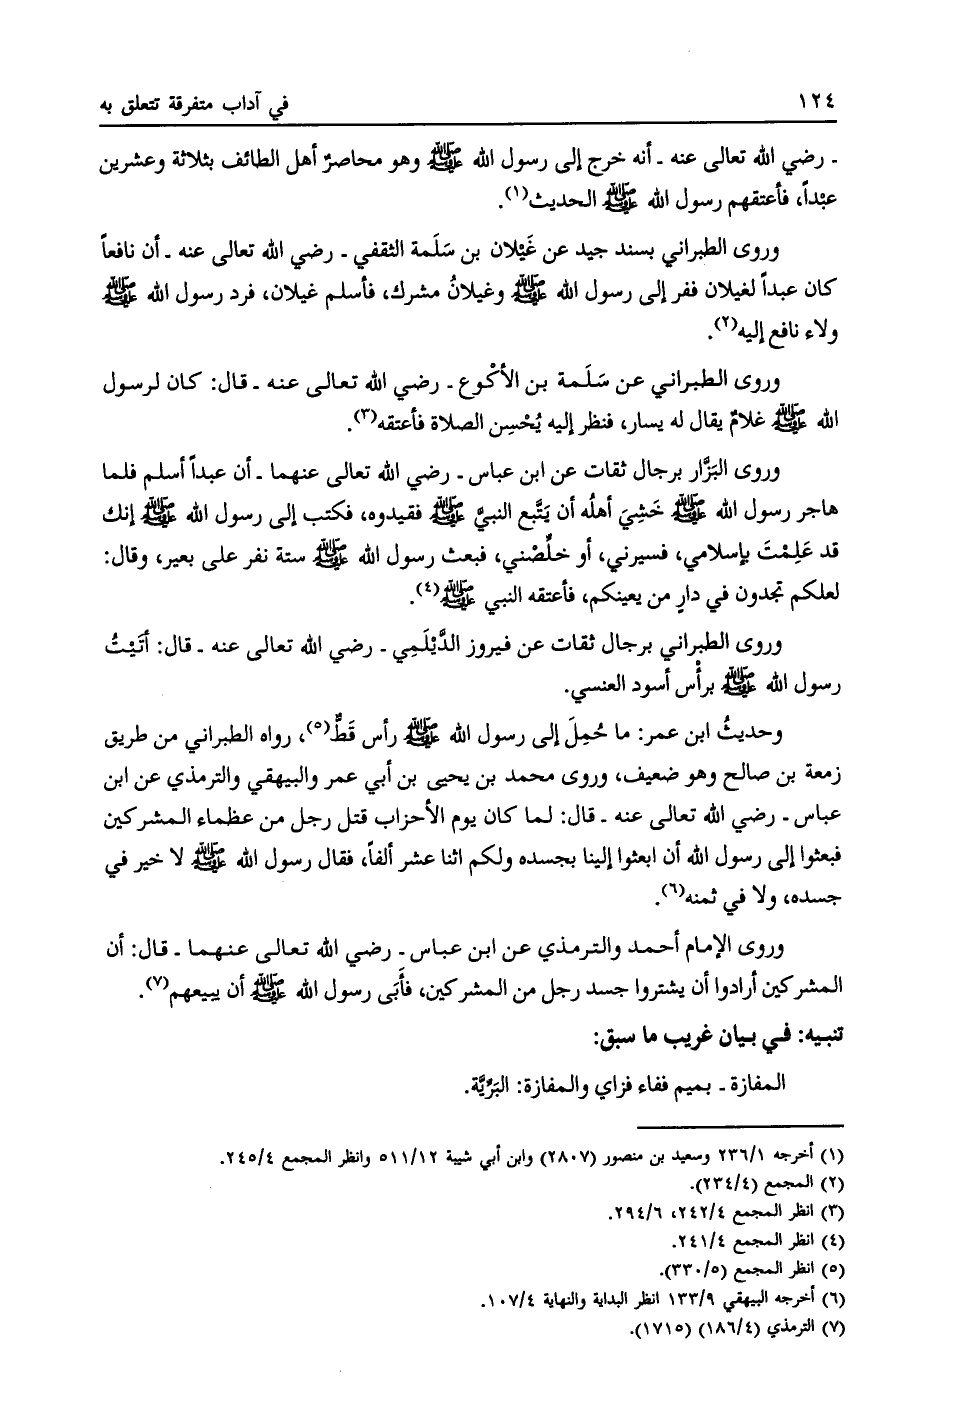 ١٢٤ في آداب متفرقة تتعلق به
ـ رضي الله تعالى عنه ـ أنه خرج إلى رسول الله ﷺ وهو محاصرٌ أهل الطائف بثلاثة وعشرين
عبْداً، فأعتقهم رسول الله ﷺ الحديث(١).
وروى الطبراني بسند جيد عن غَيْلان بن سَلَمة الثقفي ـ رضي الله تعالى عنه ـ أن نافعاً
كان عبداً لغيلان ففر إلى رسول الله ﷺ وغيلانُ مشرك، فأسلم غيلان، فرد رسول الله ﷺ
ولاء نافع إليه(٢).
وروى الطبراني عن سَلَمة بن الأكْوع ـ رضي الله تعالى عنه ـ قال: كان لرسول
الله ﷺ غلامٌ يقال له يسار، فنظر إليه يُحْسِن الصلاة فأعتقه(٣).
وروى البَزَّار برجال ثقات عن ابن عباس ـ رضي الله تعالى عنهما ـ أن عبداً أسلم فلما
هاجر رسول الله ﷺ خَشِيَ أهلُه أن يَتَّبع النبيَّ ﷺ فقيدوه، فكتب إلى رسول الله ﷺ إنك
قد عَلِمْتَ بإسلامي، فسيرني، أو خلِّصْني، فبعث رسول الله ﷺ ستة نفر على بعير، وقال:
لعلكم تجدون في دارٍ من يعينكم، فأعتقه النبي ﷺ(٤).
وروى الطبراني برجال ثقات عن فيروز الدَّيْلَمِي ـ رضي الله تعالى عنه ـ قال: أتَيْتُ
رسول الله ﷺ برأْس أسود العنسي.
وحديثُ ابن عمر: ما حُمِلَ إلى رسول الله ﷺ رأس قَطٌّ(٥)، رواه الطبراني من طريق
زمعة بن صالح وهو ضعيف، وروى محمد بن يحيى بن أبي عمر والبيهقي والترمذي عن ابن
عباس ـ رضي الله تعالى عنه ـ قال: لما كان يوم الأحزاب قتل رجل من عظماء المشركين
فبعثوا إلى رسول الله أن ابعثوا إلينا بجسده ولكم اثنا عشر ألفاً، فقال رسول الله ﷺ لا خير في
جسده، ولا في ثمنه(٦).
وروى الإمام أحمد والترمذي عن ابن عباس ـ رضي الله تعالى عنهما ـ قال: أن
المشركين أرادوا أن يشتروا جسد رجل من المشركين، فأَبَى رسول الله ﷺ أن يبيعهم(٧).
تنبيه: في بيان غريب ما سبق:
المفازة ـ بميم ففاء فزاي والمفازة: البَرِّيَّة.
(١) أخرجه ٢٣٦/١ وسعيد بن منصور (٢٨٠٧) وابن أبي شيبة ٥١١/١٢ وانظر المجمع ٢٤٥/٤.
(٢) المجمع (٢٣٤/٤).
(٣) انظر المجمع ٢٤٢/٤، ٢٩٤/٦.
(٤) انظر المجمع ٢٤١/٤.
(٥) انظر المجمع (٣٣٠/٥).
(٦) أخرجه البيهقي ١٣٣/٩ انظر البداية والنهاية ١٠٧/٤.
(٧) الترمذي (١٨٦/٤) (١٧١٥).